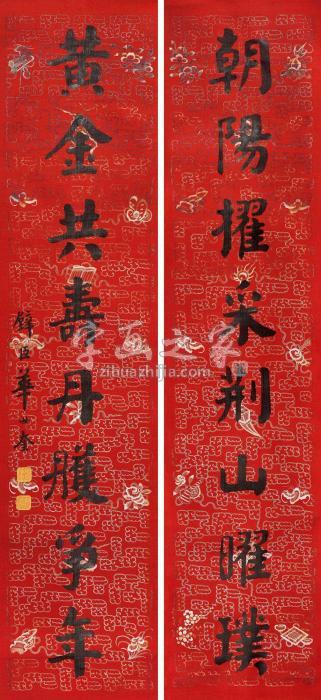 朝陽擢采荆山曜璞
黄金共壽丹雘爭年
華
字画之家
zihuazhijia.com